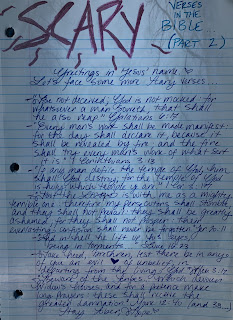 SCARY
VERSES
IN THE
BIBLE
(PART 2)
Greetings in Jesus' name ♡
Let's face some more scary verses...
"Be not deceived, God is not mocked: for
whatsoever a man soweth, that shall
he also reap" Galatians 6:7
"Every man's work shall be made manifest:
for the day shall declare it, because it
shall be revealed by fire; and the fire
shall try every man's work of what sort
it is." 1 Corinthians 3:13
"If any man defile the temple of God, him
shall God destroy; for the temple of God
is holy, which temple ye are." 1 Cor 3:17
"But the LORD is with me as a mighty
terrible one: therefore my persecutors shall stumble,
and they shall not prevail: they shall be greatly
ashamed; for they shall not prosper: their
everlasting confusion shall never be forgotten" Jer 20:11
"And in hell he lift up his eyes,
being in torments" Luke 16:23
"Take heed, brethren, lest there be in any
of you an evil heart of unbelief, in
departing from the living God" Heb 3:12
"Beware of the scribes... which devour
widows' houses, and for a pretence make
long prayers: these shall receive
greater damnation" Mark 12:
Stay